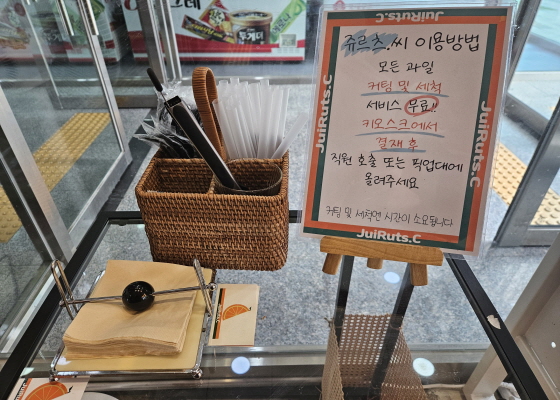 투게더
JuiRuts.C
쥬르츠.씨 이용방법
모든 과일
커팅 및 세척
서비스 무료!!
키오스크에서
결재 후
직원 호출 또는 픽업대에
올려주세요
커팅 및 세척엔 시간이 소요됩니다
JuiRuts.C
JuiRuts.C
JuiRuts.C